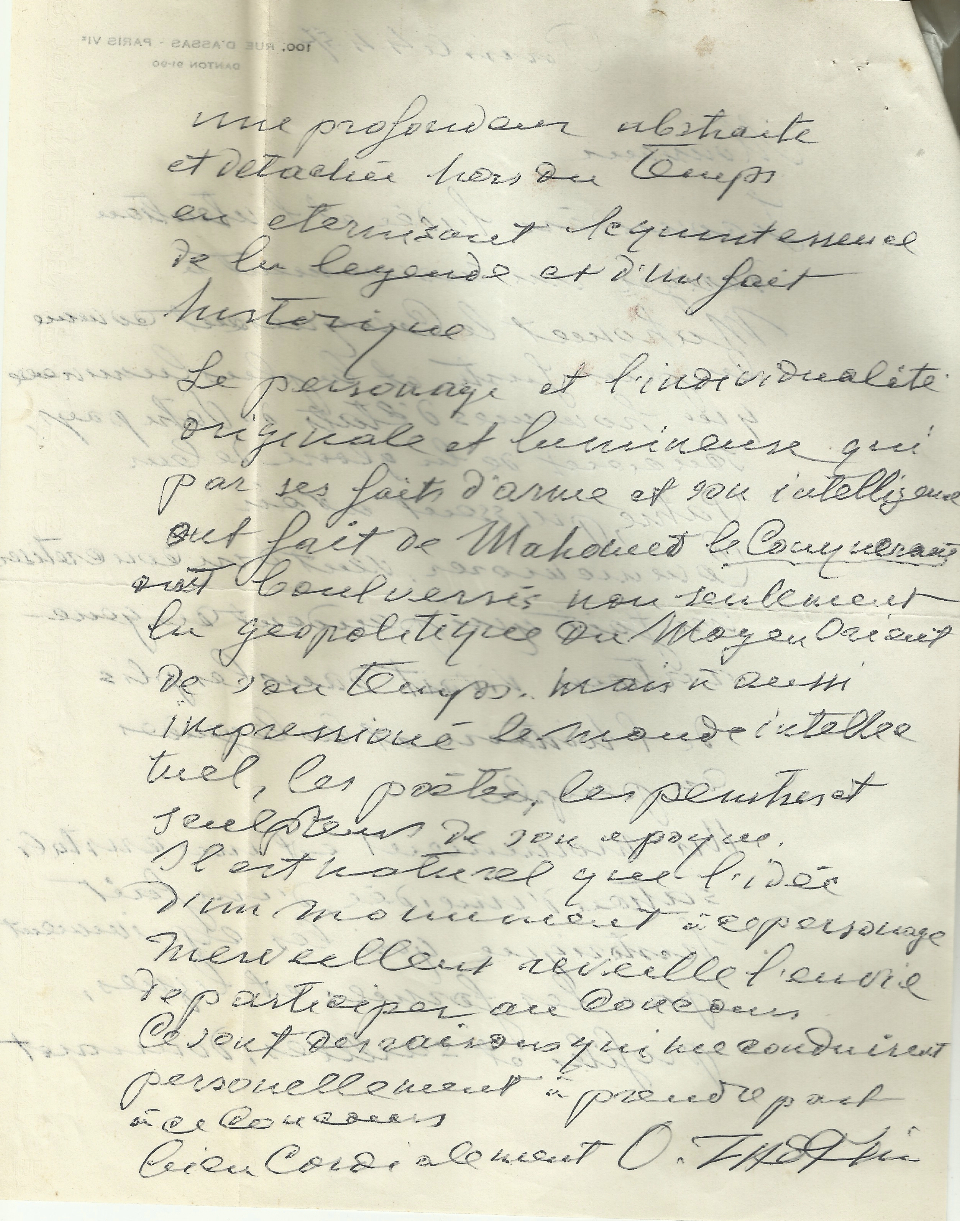 100, RUE D'ASSAS - PARIS VIᵉ
DANTON 91-90
une profondeur abstraite
et detachée hors du temps
en eternisant la quintessence
de la legende et d'un fait
historique
Le personage et l'individualité
originale et lumineuse qui
par ses faits d'arme et son intelligence
ont fait de Mahomet le Conquerant
ont boulversés non seulement
la geopolitique du Moyen Orient
de son temps. mais à aussi
impressioné le monde intellec
tuel, les poètes, les peintres et
sculpteurs de son epoque.
Il est naturel que l'idée
d'un monument à ce personage
merveilleux reveille l'envie
de participer au Concours
Ce sont des raisons qui me conduisent
personellement à prendre part
à ce Concours
bien Cordialement O.